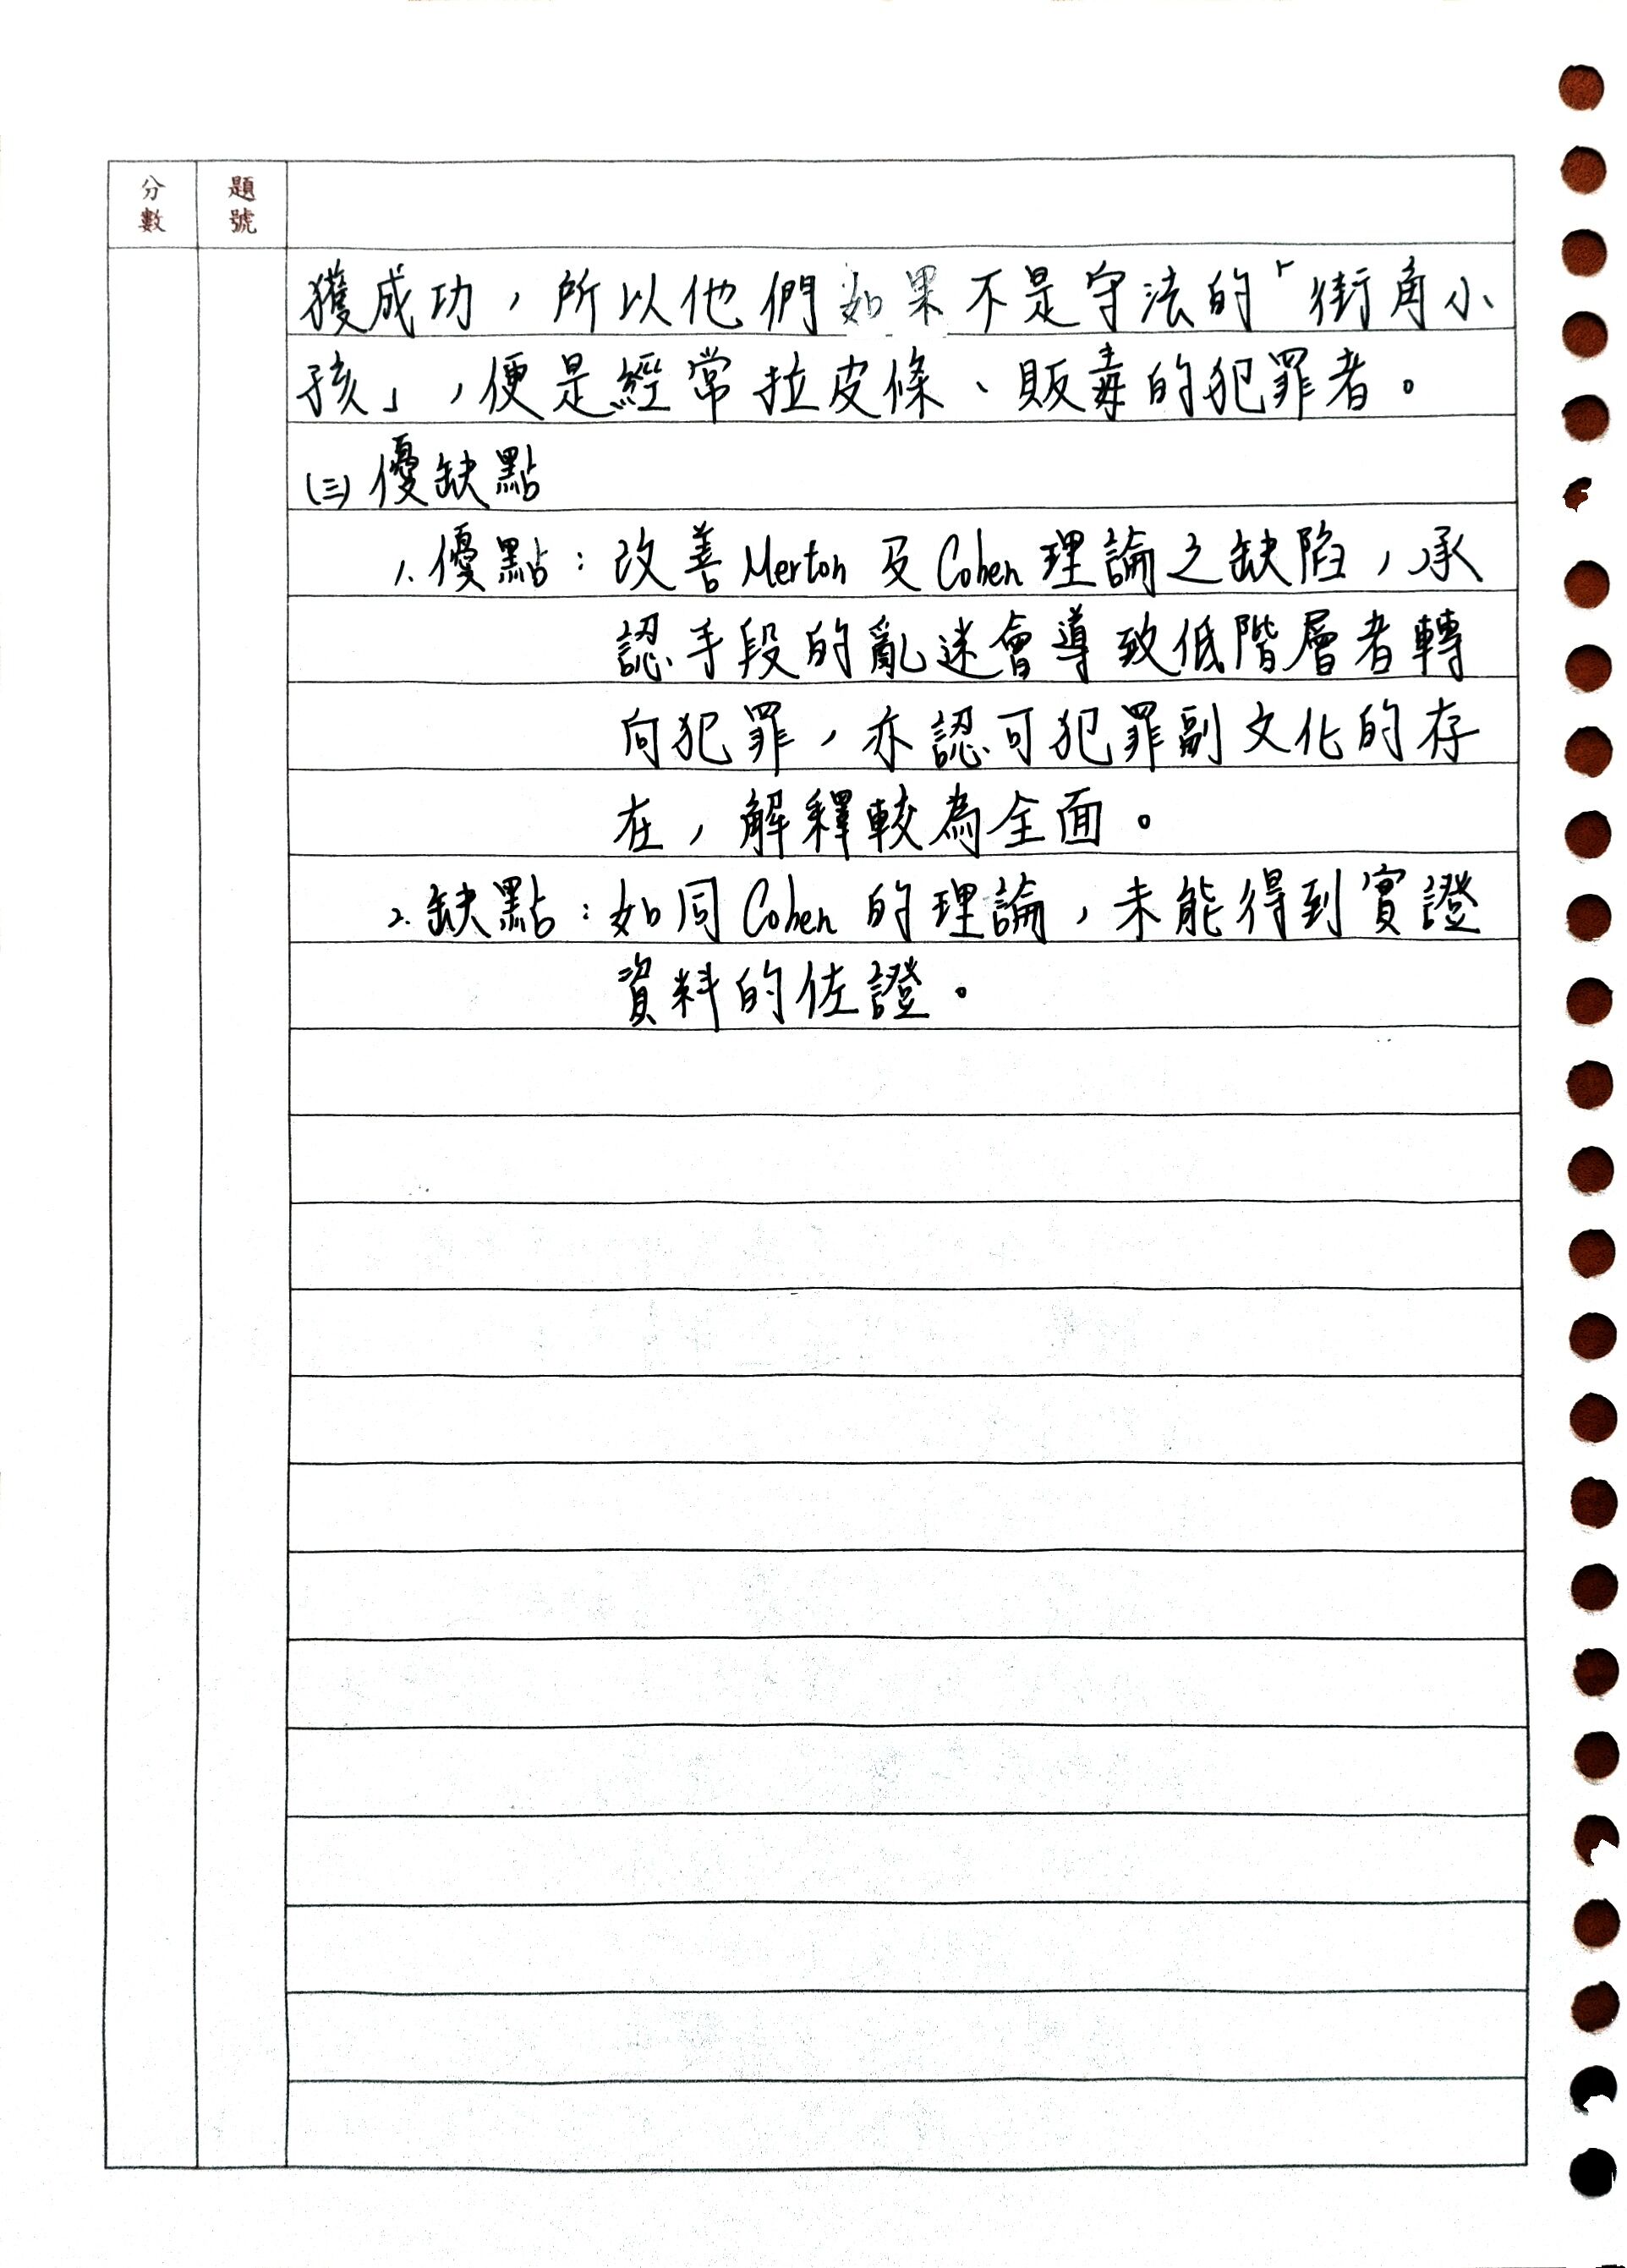 分數 題號
獲成功，所以他們如果不是守法的「街角小
孩」，便是經常拉皮條、販毒的犯罪者。
(三)優缺點
1.優點：改善Merton及Cohen理論之缺陷，承
認手段的亂迷會導致低階層者轉
向犯罪，亦認可犯罪副文化的存
在，解釋較為全面。
2.缺點：如同Cohen的理論，未能得到實證
資料的佐證。